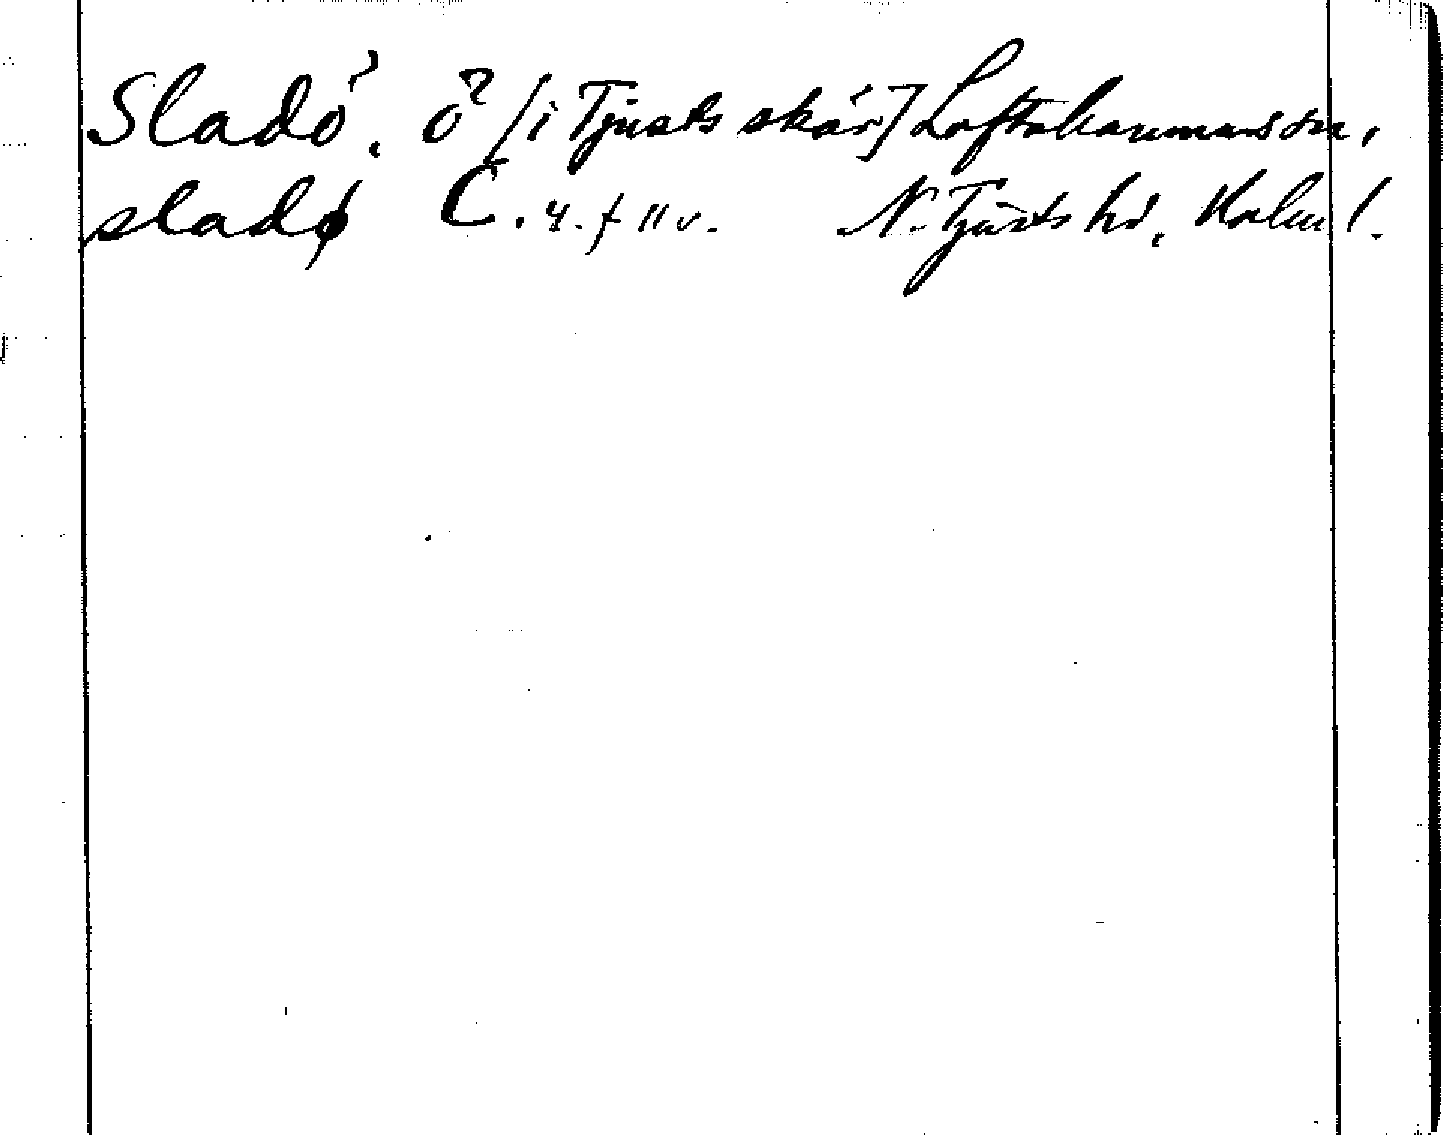 Sladö, ö [i Tjusts skär] Loftahammars sn,
sladø C. 4. f 11 v. N. Tjusts hd, Kalm l.